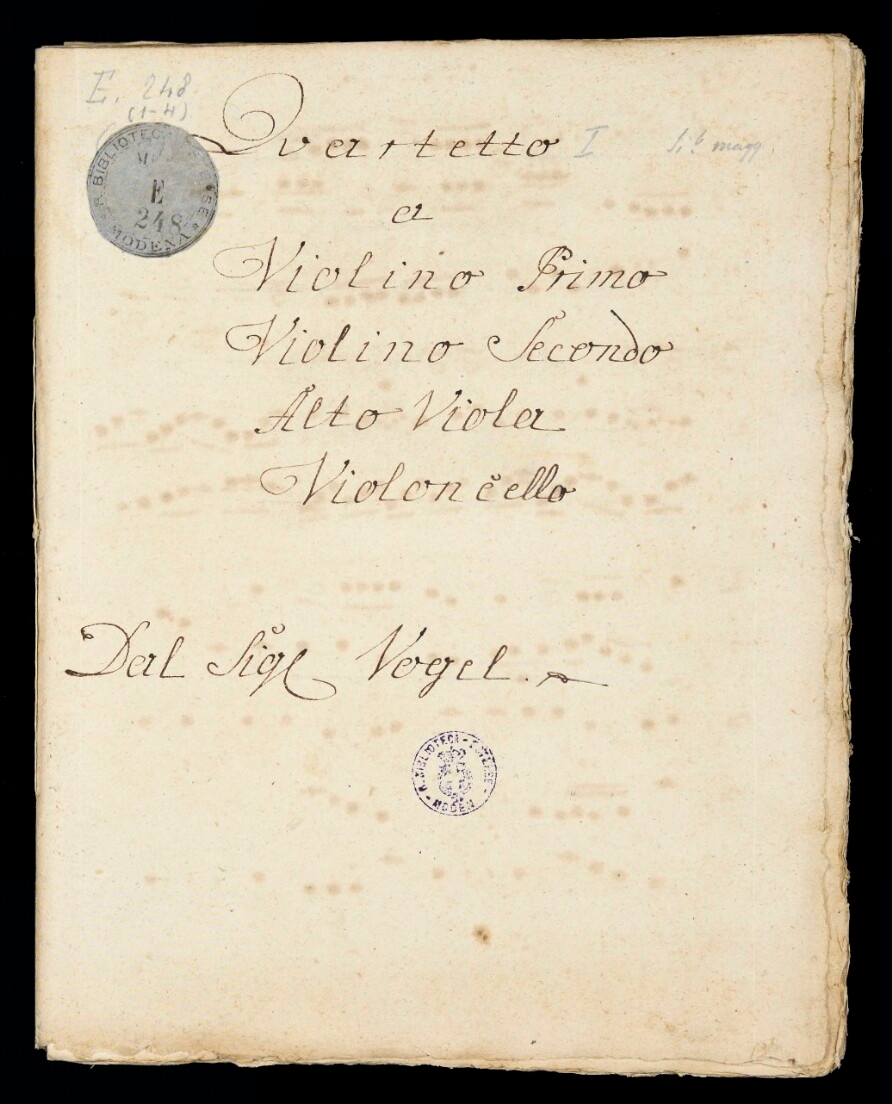 E. 248.
(1-4)
R. BIBLIOTECA ESTENSE
E
248
MODENA
Quartetto I Si b magg.
a
Violino Primo
Violino Secondo
Alto Viola
Violoncello
Dal Sigr Vogel.
R. BIBLIOTECA ESTENSE
MODENA